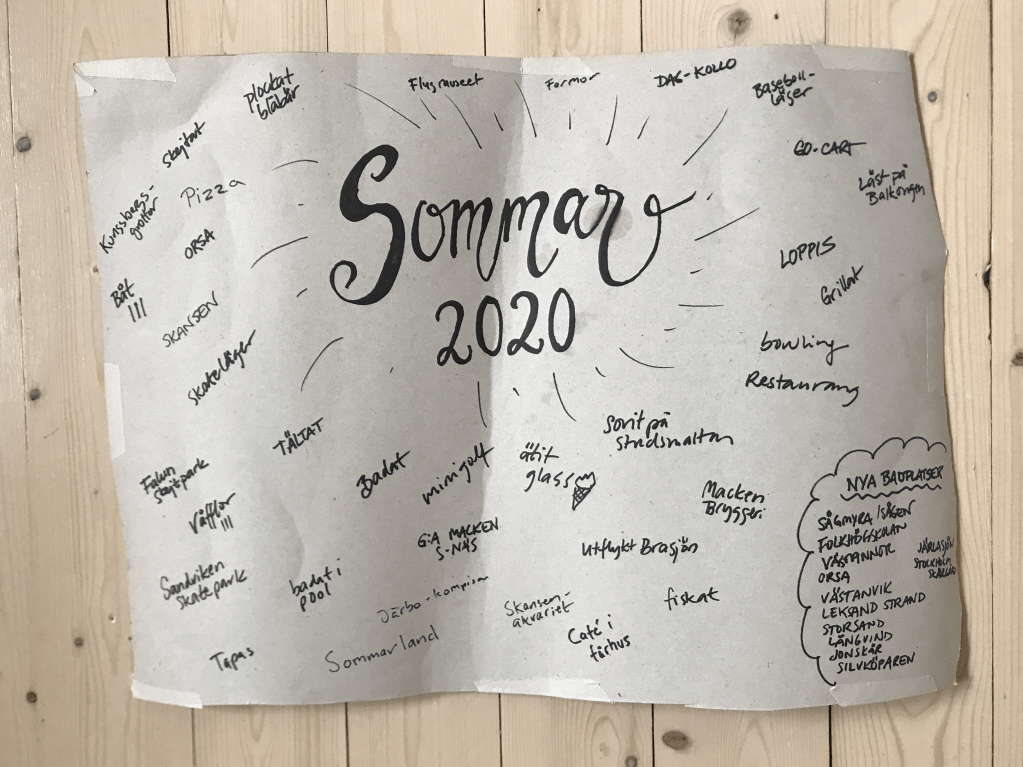 Sommar
2020
plockat
blåbär
Flygmuseet
Farmor
DAG-KOLLO
Baseboll-
läger
Skejtat
Pizza
GO-CART
Läst på
Balkongen
grottor
ORSA
LOPPIS
Båt
III
SKANSEN
Grillat
skateläger
bowling
Restaurang
TÄLTAT
Badat
minigolf
ätit
glass
sovit på
studsmattan
Falun
skejtpark
Våfflor
III
Macken
Bryggeri
GA MACKEN
S-NÄS
Utflykt Brasjön
Sandviken
skatepark
badat i
pool
JErbo-kompisar
Skansen-
akvariet
fiskat
Café i
fårhus
Tapas
Sommarland
NYA BADPLATSER
SÅGMYRA/SÅGEN
FOLKHÖGSKOLAN
VÄSTANNOR
ORSA
VÄSTANVIK
LEKSAND STRAND
STORSAND
LÅNGVIND
JONSKÄR
SILVKÖPAREN
JÄRLASJÖN
STOCKHOLM
SKÄRGÅRD